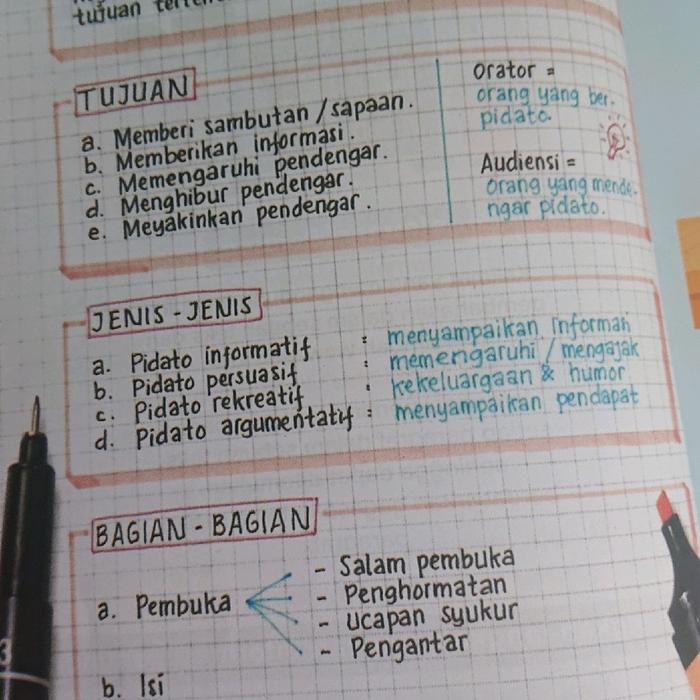 tujuan
TUJUAN
a. Memberi sambutan / sapaan.
b. Memberikan informasi.
c. Memengaruhi pendengar.
d. Menghibur pendengar.
e. Meyakinkan pendengar.
Orator =
orang yang ber-
pidato.
Audiensi =
orang yang mende-
ngar pidato.
JENIS - JENIS
a. Pidato informatif : menyampaikan informasi
b. Pidato persuasif : memengaruhi / mengajak
c. Pidato rekreatif : kekeluargaan & humor
d. Pidato argumentatif : menyampaikan pendapat
BAGIAN - BAGIAN
a. Pembuka
- Salam pembuka
- Penghormatan
- Ucapan syukur
- Pengantar
b. Isi